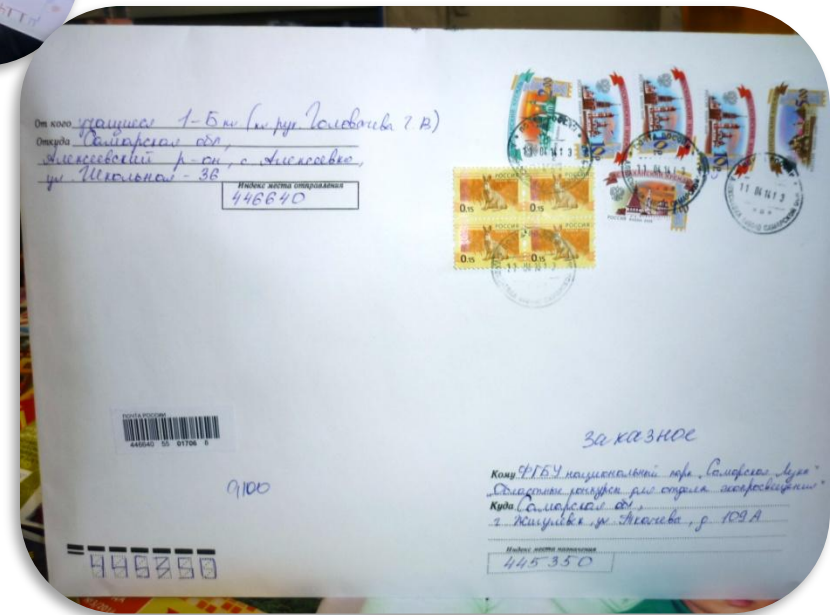 От кого учащиеся 1-Б кл (кл рук. Головачева Г.В)
Откуда Самарская обл,
Алексеевский р-он, с Алексеевка,
ул. Школьная - 36
Индекс места отправления
446640
РОССИЯ РОССИЯ
0.15 0.15
РОССИЯ РОССИЯ
0.15 0.15
11 04 14 13
ПОЧТА РОССИИ
446640 55 01706 6
9,100
заказное
Кому ФГБУ национальный парк "Самарская Лука"
"Областные конкурсы для отдела экопросвещения"
Куда Самарская обл,
г Жигулевск, ул Ткачева, д. 109А
Индекс места назначения
445350
445350